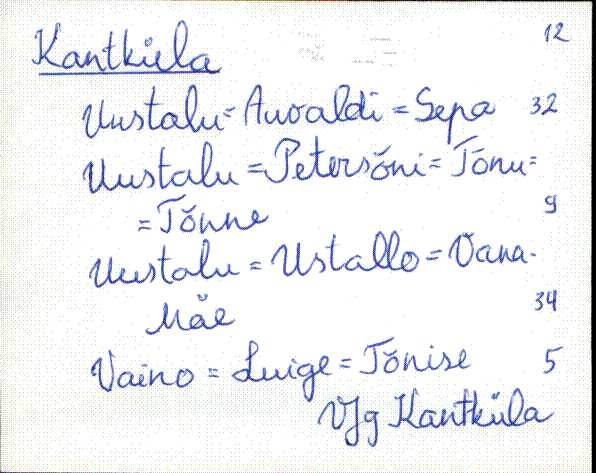 Kantküla 12
Uustalu = Auvaldi = Sepa 32
Uustalu = Petersõni = Tõnu =
= Tõnne 9
Uustalu = Ustallo = Vana-
Mäe 34
Vaino = Luige = Tõnise 5
VJg Kantküla